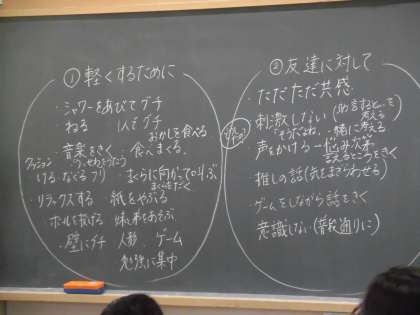 ①軽くするために
・シャワーをあびてグチ
ねる 1人でグチ
おかしを食べる
・音楽をきく ・食べまくる
クッション うでたてふせ
ける・なぐるフリ ・まくらに向かって叫ぶ
まくらをだく
・リラックスする 紙をやぶる
ボールを投げる 妹と弟とあそぶ
・壁にグチ 人形 ゲーム
勉強に集中
②友達に対して
・ただただ共感
・刺激しない(助言することを考える)
「そうだよね」 一緒に考える
声をかける→悩み次第
言えるところをきく
・推しの話(気をまぎらわせる)
・ゲームをしながら話をきく
・意識しない(普段通りに)